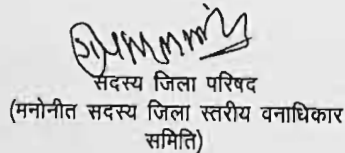 सदस्य जिला परिषद
(मनोनीत सदस्य जिला स्तरीय वनाधिकार
समिति)